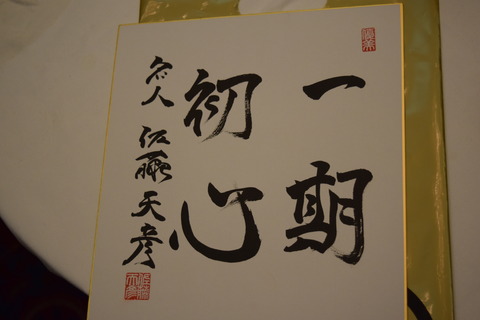 一期
初心
名人 佐藤天彦